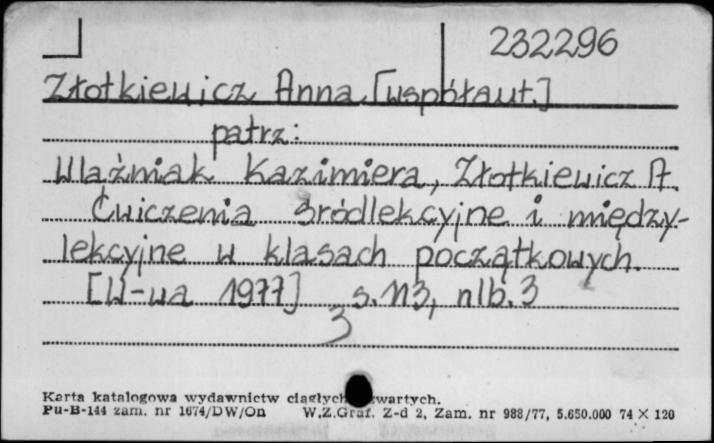 232296
Złotkiewicz Anna [współaut.]
patrz:
Ulaźniak Kazimiera, Złotkiewicz A.
Ćwiczenia śródlekcyjne i między-
lekcyjne w klasach początkowych.
[W-wa 1977] s. 113, nlb. 3
3
Karta katalogowa wydawnictw ciągłych zwartych.
Pu-B-144 zam. nr 1674/DW/On W.Z.Graf. Z-d 2, Zam. nr 988/77, 5.650.000 74 X 120